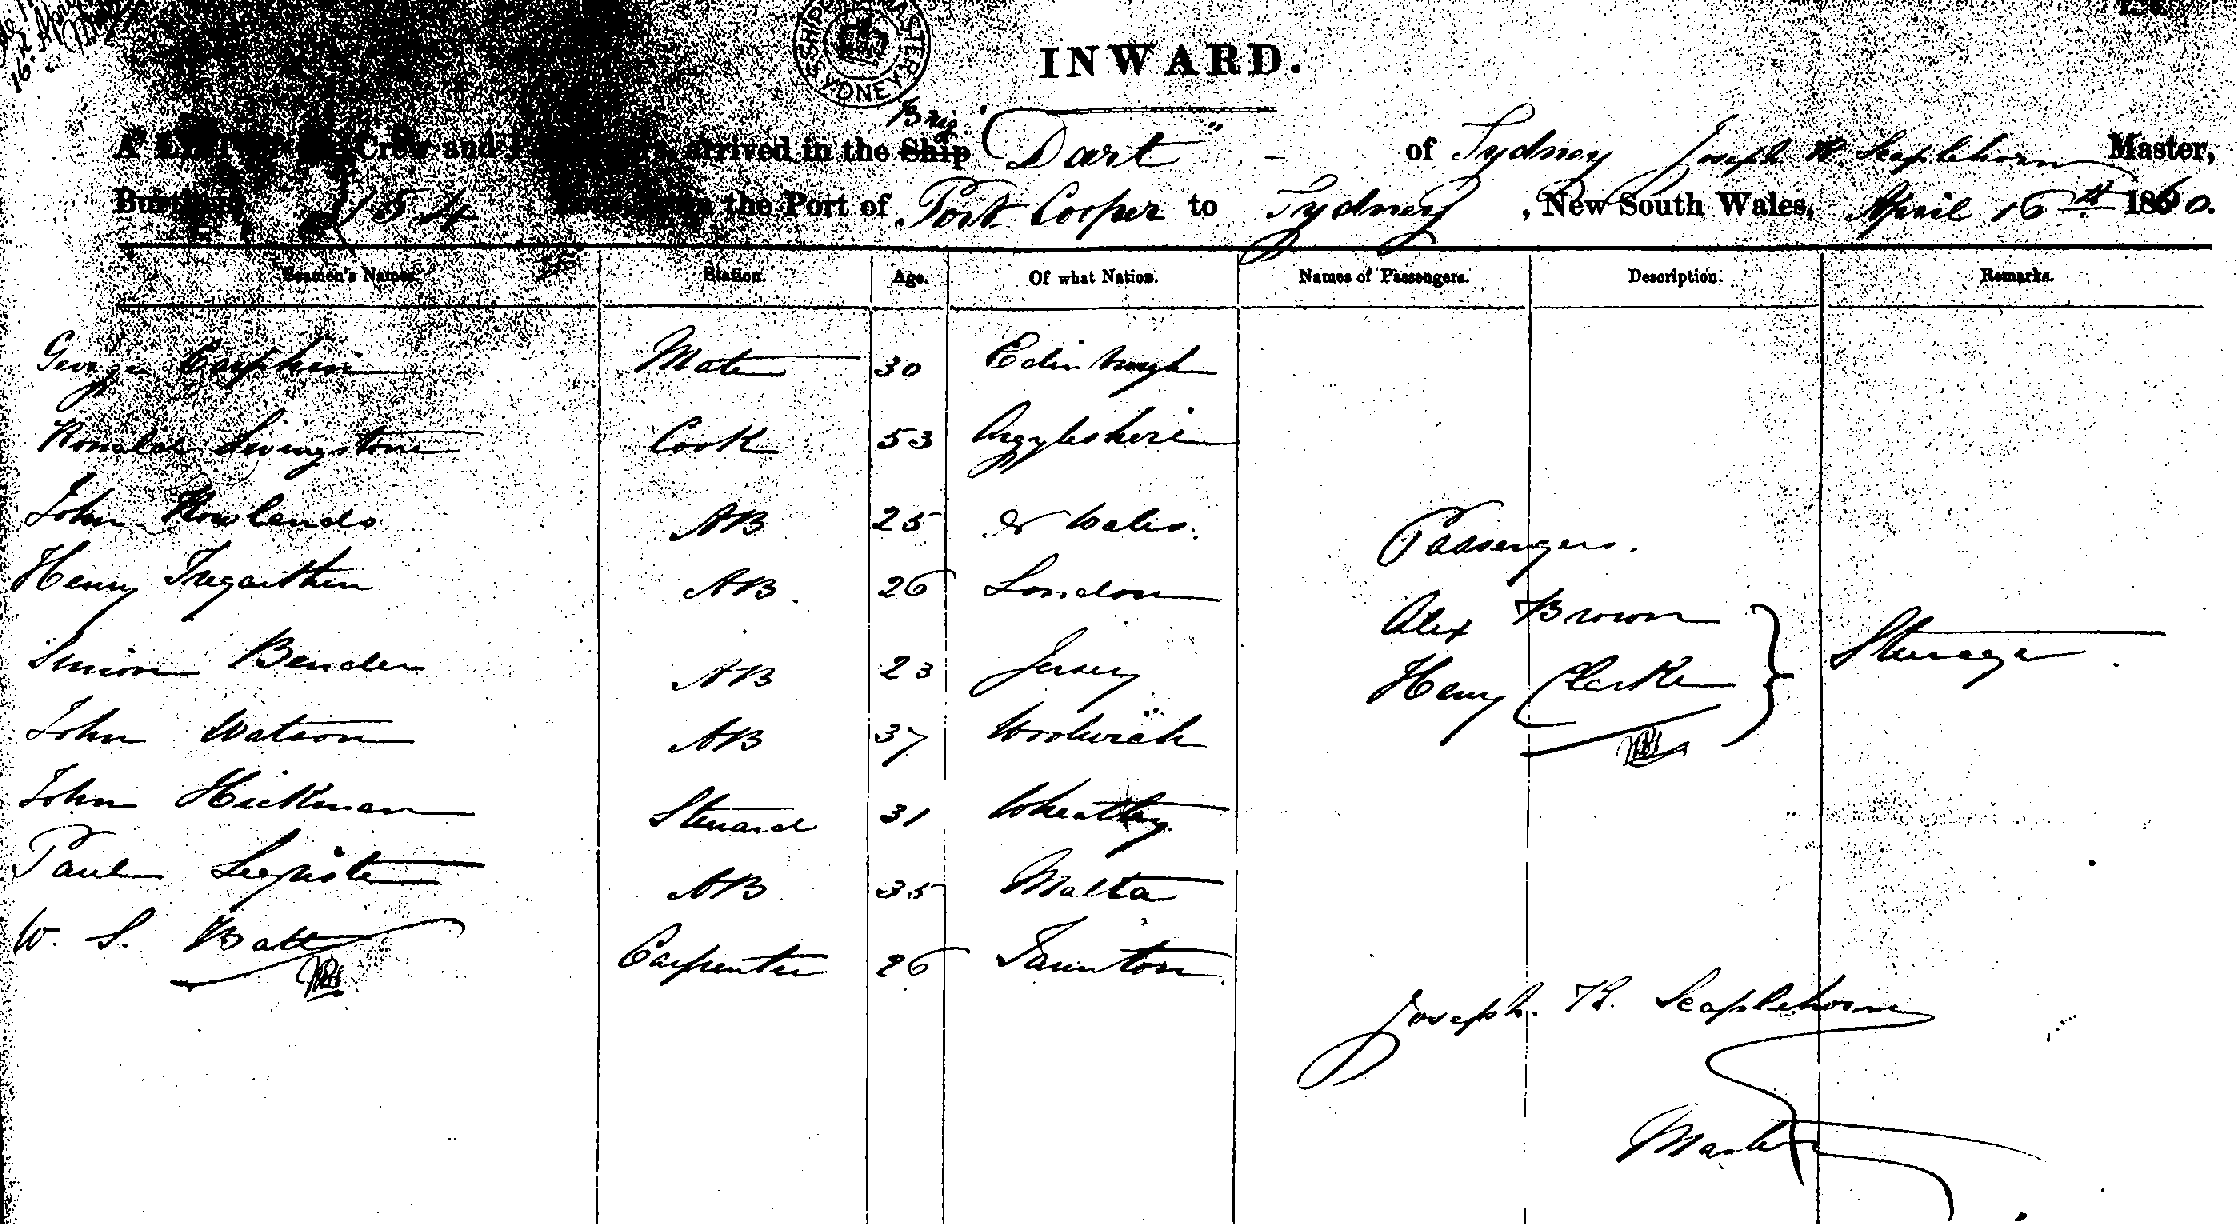 INWARD.
Crew and arrived in the Ship Brig "Dart" - of Sydney Joseph R Scaplehorn Master,
154 the Port of Port Cooper to Sydney, New South Wales, April 16th 1860.
Seamen's Names. Station. Age. Of what Nation. Names of Passengers. Description. Remarks.
George Mate 30 Edinburgh
Ronald Livingstone Cook 53 Argyleshire
John Rowlands AB 25 Wales.
Passengers.
Henry Tregarthen AB. 26 London
Alex Brown
Simion Bender AB 23 Jersey
Henry Clarke Steerage
John Watson AB 37 Woolwich
John Hickman Steward 31 Wheatley
Paul AB 35 Malta
W. S. Batt Carpenter 26 Taunton
Joseph. R. Scaplehorn
Master